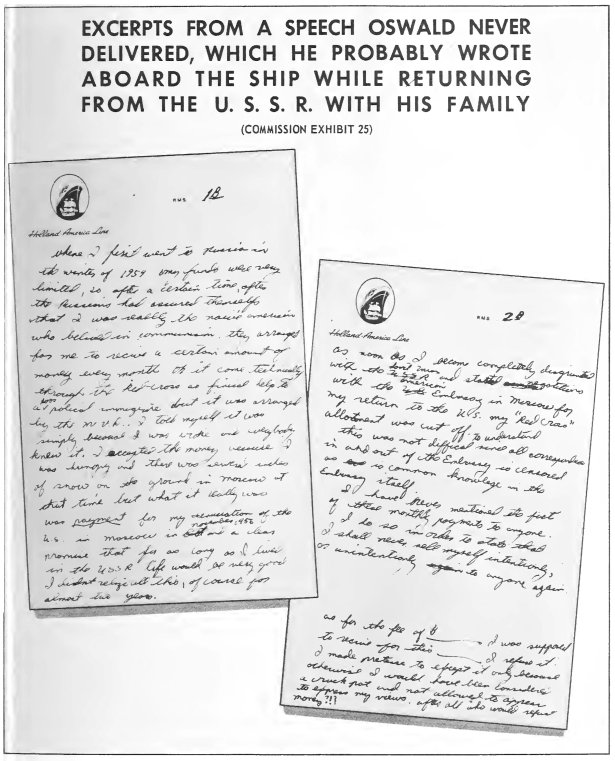 EXCERPTS FROM A SPEECH OSWALD NEVER
DELIVERED, WHICH HE PROBABLY WROTE
ABOARD THE SHIP WHILE RETURNING
FROM THE U. S. S. R. WITH HIS FAMILY
(COMMISSION EXHIBIT 25)
RMS 1B
Holland America Line
where I first went to Russia in
the winter of 1959 my funds were very
limited, so after a certain time, after
the Russians had assured themselfs
that I was really the naive american
who belived in communism, they arranged
for me to recive a certain amount of
money every month. OK it came technically
through the Red-cross as finical help to
a polical immigrate but it was arranged
by the M.V.D. I told myself it was
simply because I was broke and everybody
knew it. I accepted the money, because I
was hungry and there was several inches
of snow on the ground in moscow at
that time but what it really was
was payment for my denuciation of the
U.S. in moscow in november 1959 and a clear
promise that for as long as I lived
in the USSR life would be very good
I didn't relize all this, of course for
almost two years.
RMS 2B
Holland America Line
as soon as I became completely disgruntled
with the Soviet Union and started negotiations
with the american Embassy in Moscow for
my return to the U.S. my "Red Cross"
allotment was cut off.
this was not diffical to understand
since all correspondence
in and out of the Embassy is censored
as is common knowlege in the
Embassy itself.
I have never mentioned the fact
of these monthly payments to anyone.
I do so in order to state that
I shall never sell myself intentionly,
or unintentionly to anyone again
as for the fee of $ I was supposed
to recive for this I refuse it.
I made pretense to except it only because
otherwise I would have been considered
a crack pot and not allowed to appear
to express my views. after all who would refuse
money?!!